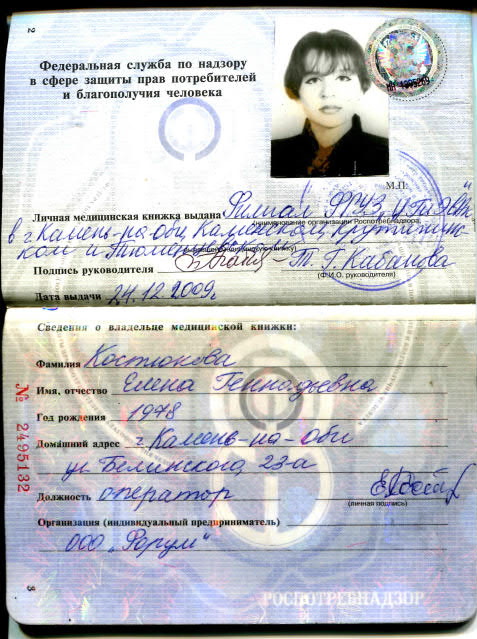 2
Федеральная служба по надзору
в сфере защиты прав потребителей
и благополучия человека
М.П.
Личная медицинская книжка выдана Филиал ФГУЗ "ЦГиЭ
(наименование организации Роспотребнадзора,
в г. Камень-на-Оби, Каменском, Крутихинс-
ком и Тюменц
Подпись руководителя Т. Г. Кабанова
(Ф.И.О. руководителя)
Дата выдачи 24.12.2009г
Сведения о владельце медицинской книжки:
Фамилия Костюкова
Имя, отчество Елена Геннадьевна
Год рождения 1978
Домашний адрес г. Камень-на-Оби
ул Белинского, 23-а
Должность оператор
(личная подпись)
Организация (индивидуальный предприниматель)
ООО „Форум"
№ 2495132
3
РОСПОТРЕБНАДЗОР